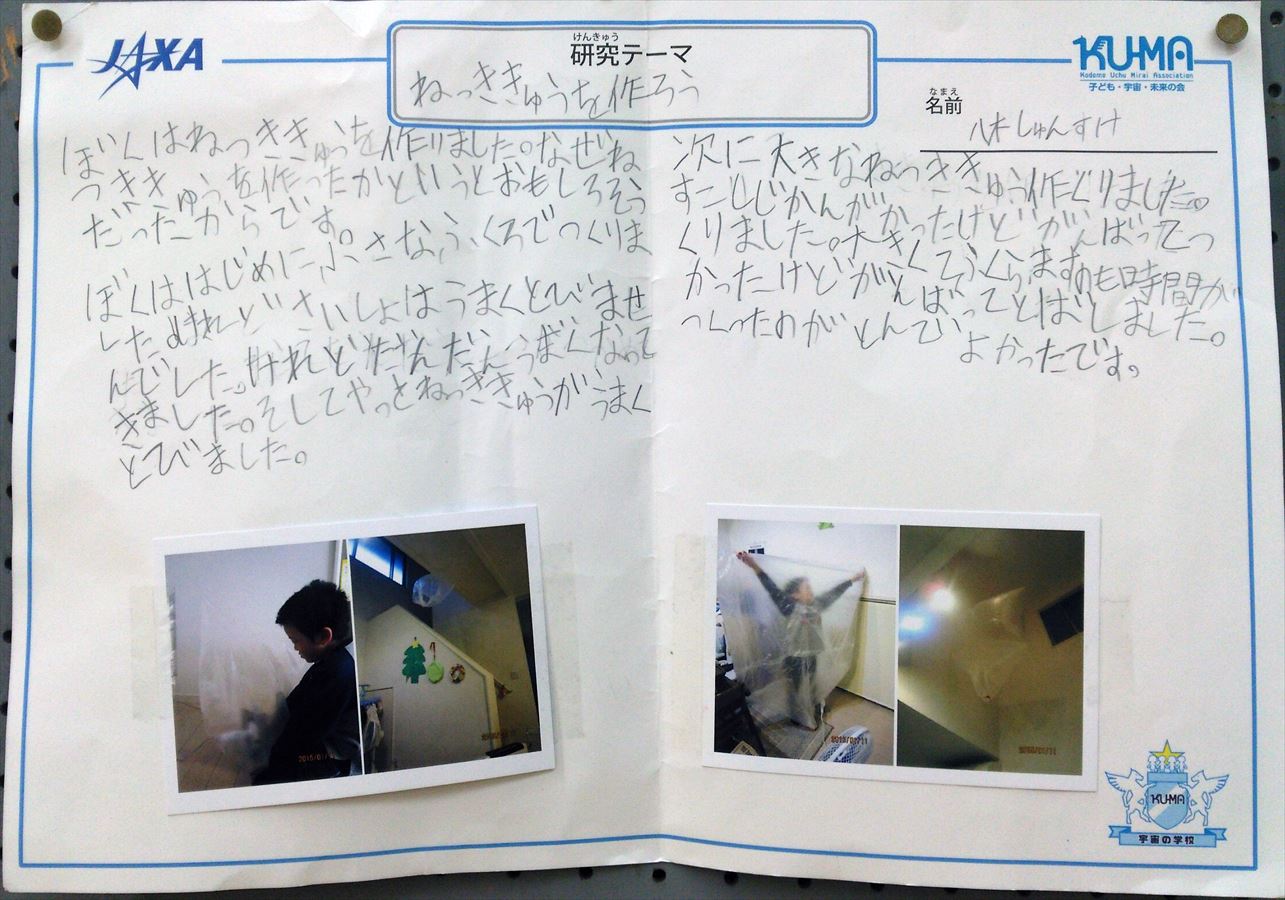 JAXA
けんきゅう
研究テーマ
ねっききゅうを作ろう
KU-MA
Kodomo Uchu Mirai Association
子ども・宇宙・未来の会
なまえ
名前
八木しゅんすけ
ぼくはねっききゅうを作りました。なぜね
っききゅうを作ったかというとおもしろそう
だったからです。
ぼくははじめに、小さな、ふくろでつくりま
した。けれどさいしょはうまくとびませ
んでした。けれどだんだんうまくなって
きました。そしてやっとねっききゅうがうまく
とびました。
次に大きなねっききゅう作くりました。
すこしじかんがかかったけどがんばってつ
くりました。大きくてふくらますのも時間が
かったけどがんばってとばしました。
つくったのがとんでよかったです。
2015/01/11
KU-MA
宇宙の学校